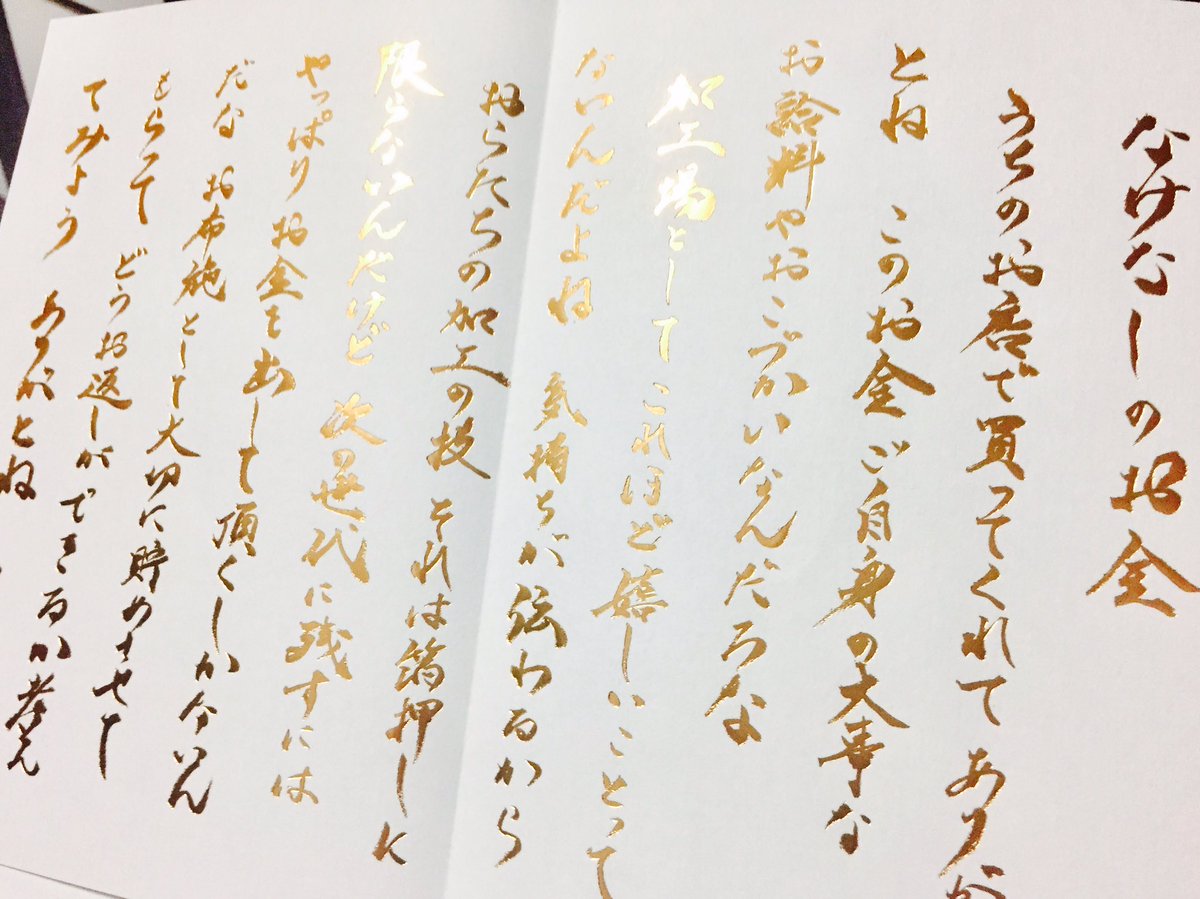 なけなしのお金
うちのお店で買ってくれて ありが
とね このお金 ご自身の大事な
お給料やおこづかいなんだろな
加工場として これほど嬉しいことって
ないんだよね 気持ちが伝わるから
おらたちの加工の技 それは箔押しに
限らないんだけど 次の世代に残すには
やっぱりお金を出して頂くしかないん
だな お布施として大切に貯めさせて
もらって どうお返しができるか考え
てみよう ありがとね